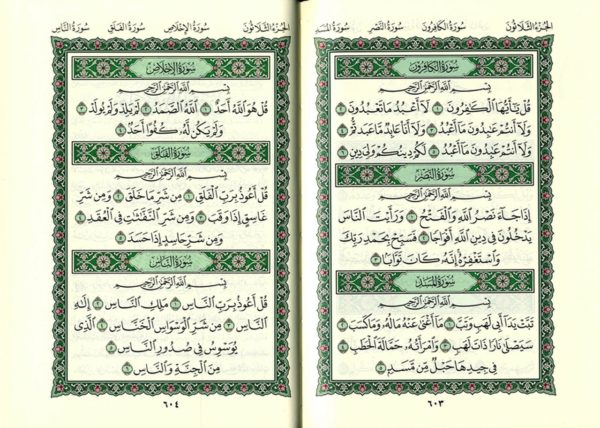 سُورَةُ المَسَد سُورَةُ النَّصْر سُورَةُ الكَافِرُون الجُزْءُ الثَّلَاثُونَ
سُورَةُ الكَافِرُونَ
بِسْمِ اللَّهِ الرَّحْمَٰنِ الرَّحِيمِ
قُلْ يَا أَيُّهَا الْكَافِرُونَ ١ لَا أَعْبُدُ مَا تَعْبُدُونَ ٢
وَلَا أَنْتُمْ عَابِدُونَ مَا أَعْبُدُ ٣ وَلَا أَنَا عَابِدٌ مَا عَبَدْتُمْ ٤
وَلَا أَنْتُمْ عَابِدُونَ مَا أَعْبُدُ ٥ لَكُمْ دِينُكُمْ وَلِيَ دِينِ ٦
سُورَةُ النَّصْرِ
بِسْمِ اللَّهِ الرَّحْمَٰنِ الرَّحِيمِ
إِذَا جَاءَ نَصْرُ اللَّهِ وَالْفَتْحُ ١ وَرَأَيْتَ النَّاسَ
يَدْخُلُونَ فِي دِينِ اللَّهِ أَفْوَاجًا ٢ فَسَبِّحْ بِحَمْدِ رَبِّكَ
وَاسْتَغْفِرْهُ إِنَّهُ كَانَ تَوَّابًا ٣
سُورَةُ المَسَدِ
بِسْمِ اللَّهِ الرَّحْمَٰنِ الرَّحِيمِ
تَبَّتْ يَدَا أَبِي لَهَبٍ وَتَبَّ ١ مَا أَغْنَىٰ عَنْهُ مَالُهُ وَمَا كَسَبَ ٢
سَيَصْلَىٰ نَارًا ذَاتَ لَهَبٍ ٣ وَامْرَأَتُهُ حَمَّالَةَ الْحَطَبِ ٤
فِي جِيدِهَا حَبْلٌ مِنْ مَسَدٍ ٥
٦٠٣
الجُزْءُ الثَّلَاثُونَ سُورَةُ الإِخْلَاص سُورَةُ الفَلَق سُورَةُ النَّاس
سُورَةُ الإِخْلَاصِ
بِسْمِ اللَّهِ الرَّحْمَٰنِ الرَّحِيمِ
قُلْ هُوَ اللَّهُ أَحَدٌ ١ اللَّهُ الصَّمَدُ ٢ لَمْ يَلِدْ وَلَمْ يُولَدْ ٣
وَلَمْ يَكُنْ لَهُ كُفُوًا أَحَدٌ ٤
سُورَةُ الفَلَقِ
بِسْمِ اللَّهِ الرَّحْمَٰنِ الرَّحِيمِ
قُلْ أَعُوذُ بِرَبِّ الْفَلَقِ ١ مِنْ شَرِّ مَا خَلَقَ ٢ وَمِنْ شَرِّ
غَاسِقٍ إِذَا وَقَبَ ٣ وَمِنْ شَرِّ النَّفَّاثَاتِ فِي الْعُقَدِ ٤
وَمِنْ شَرِّ حَاسِدٍ إِذَا حَسَدَ ٥
سُورَةُ النَّاسِ
بِسْمِ اللَّهِ الرَّحْمَٰنِ الرَّحِيمِ
قُلْ أَعُوذُ بِرَبِّ النَّاسِ ١ مَلِكِ النَّاسِ ٢ إِلَٰهِ
النَّاسِ ٣ مِنْ شَرِّ الْوَسْوَاسِ الْخَنَّاسِ ٤ الَّذِي
يُوَسْوِسُ فِي صُدُورِ النَّاسِ ٥
مِنَ الْجِنَّةِ وَالنَّاسِ ٦
٦٠٤